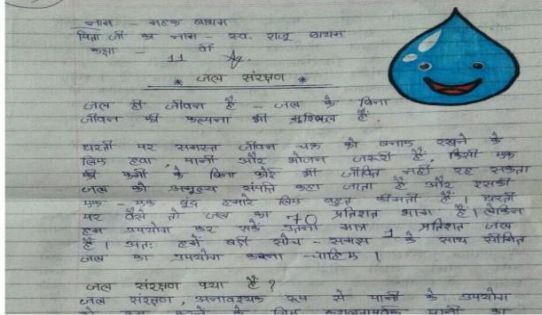 नाम - महक बाथम
पिता जी का नाम - स्व. राजू बाथम
कक्षा - 11 वी
* जल संरक्षण *
जल ही जीवन है - जल के बिना
जीवन की कल्पना भी मुश्किल है.
धरती पर समस्त जीवन चक्र को बनाऐ रखने के
लिए हवा, पानी और भोजन जरूरी है, किसी एक
की कमी के बिना कोई भी जीवित नहीं रह सकता
जल को अमूल्य संपत्ति कहा जाता है और इसकी
एक - एक बूंद हमारे लिए बहुत कीमती है। धरती
पर वैसे तो जल का 70 प्रतिशत भाग है। लेकिन
हम उपयोग कर सके उतनी मात्र 1 प्रतिशत जल
है। अतः हमें बड़ी सोच - समझ के साथ सीमित
जल का उपयोग करना चाहिए।
जल संरक्षण क्या है?
जल संरक्षण, अनावश्यक रूप से पानी के उपयोग
को कम करने के लिए पानी का